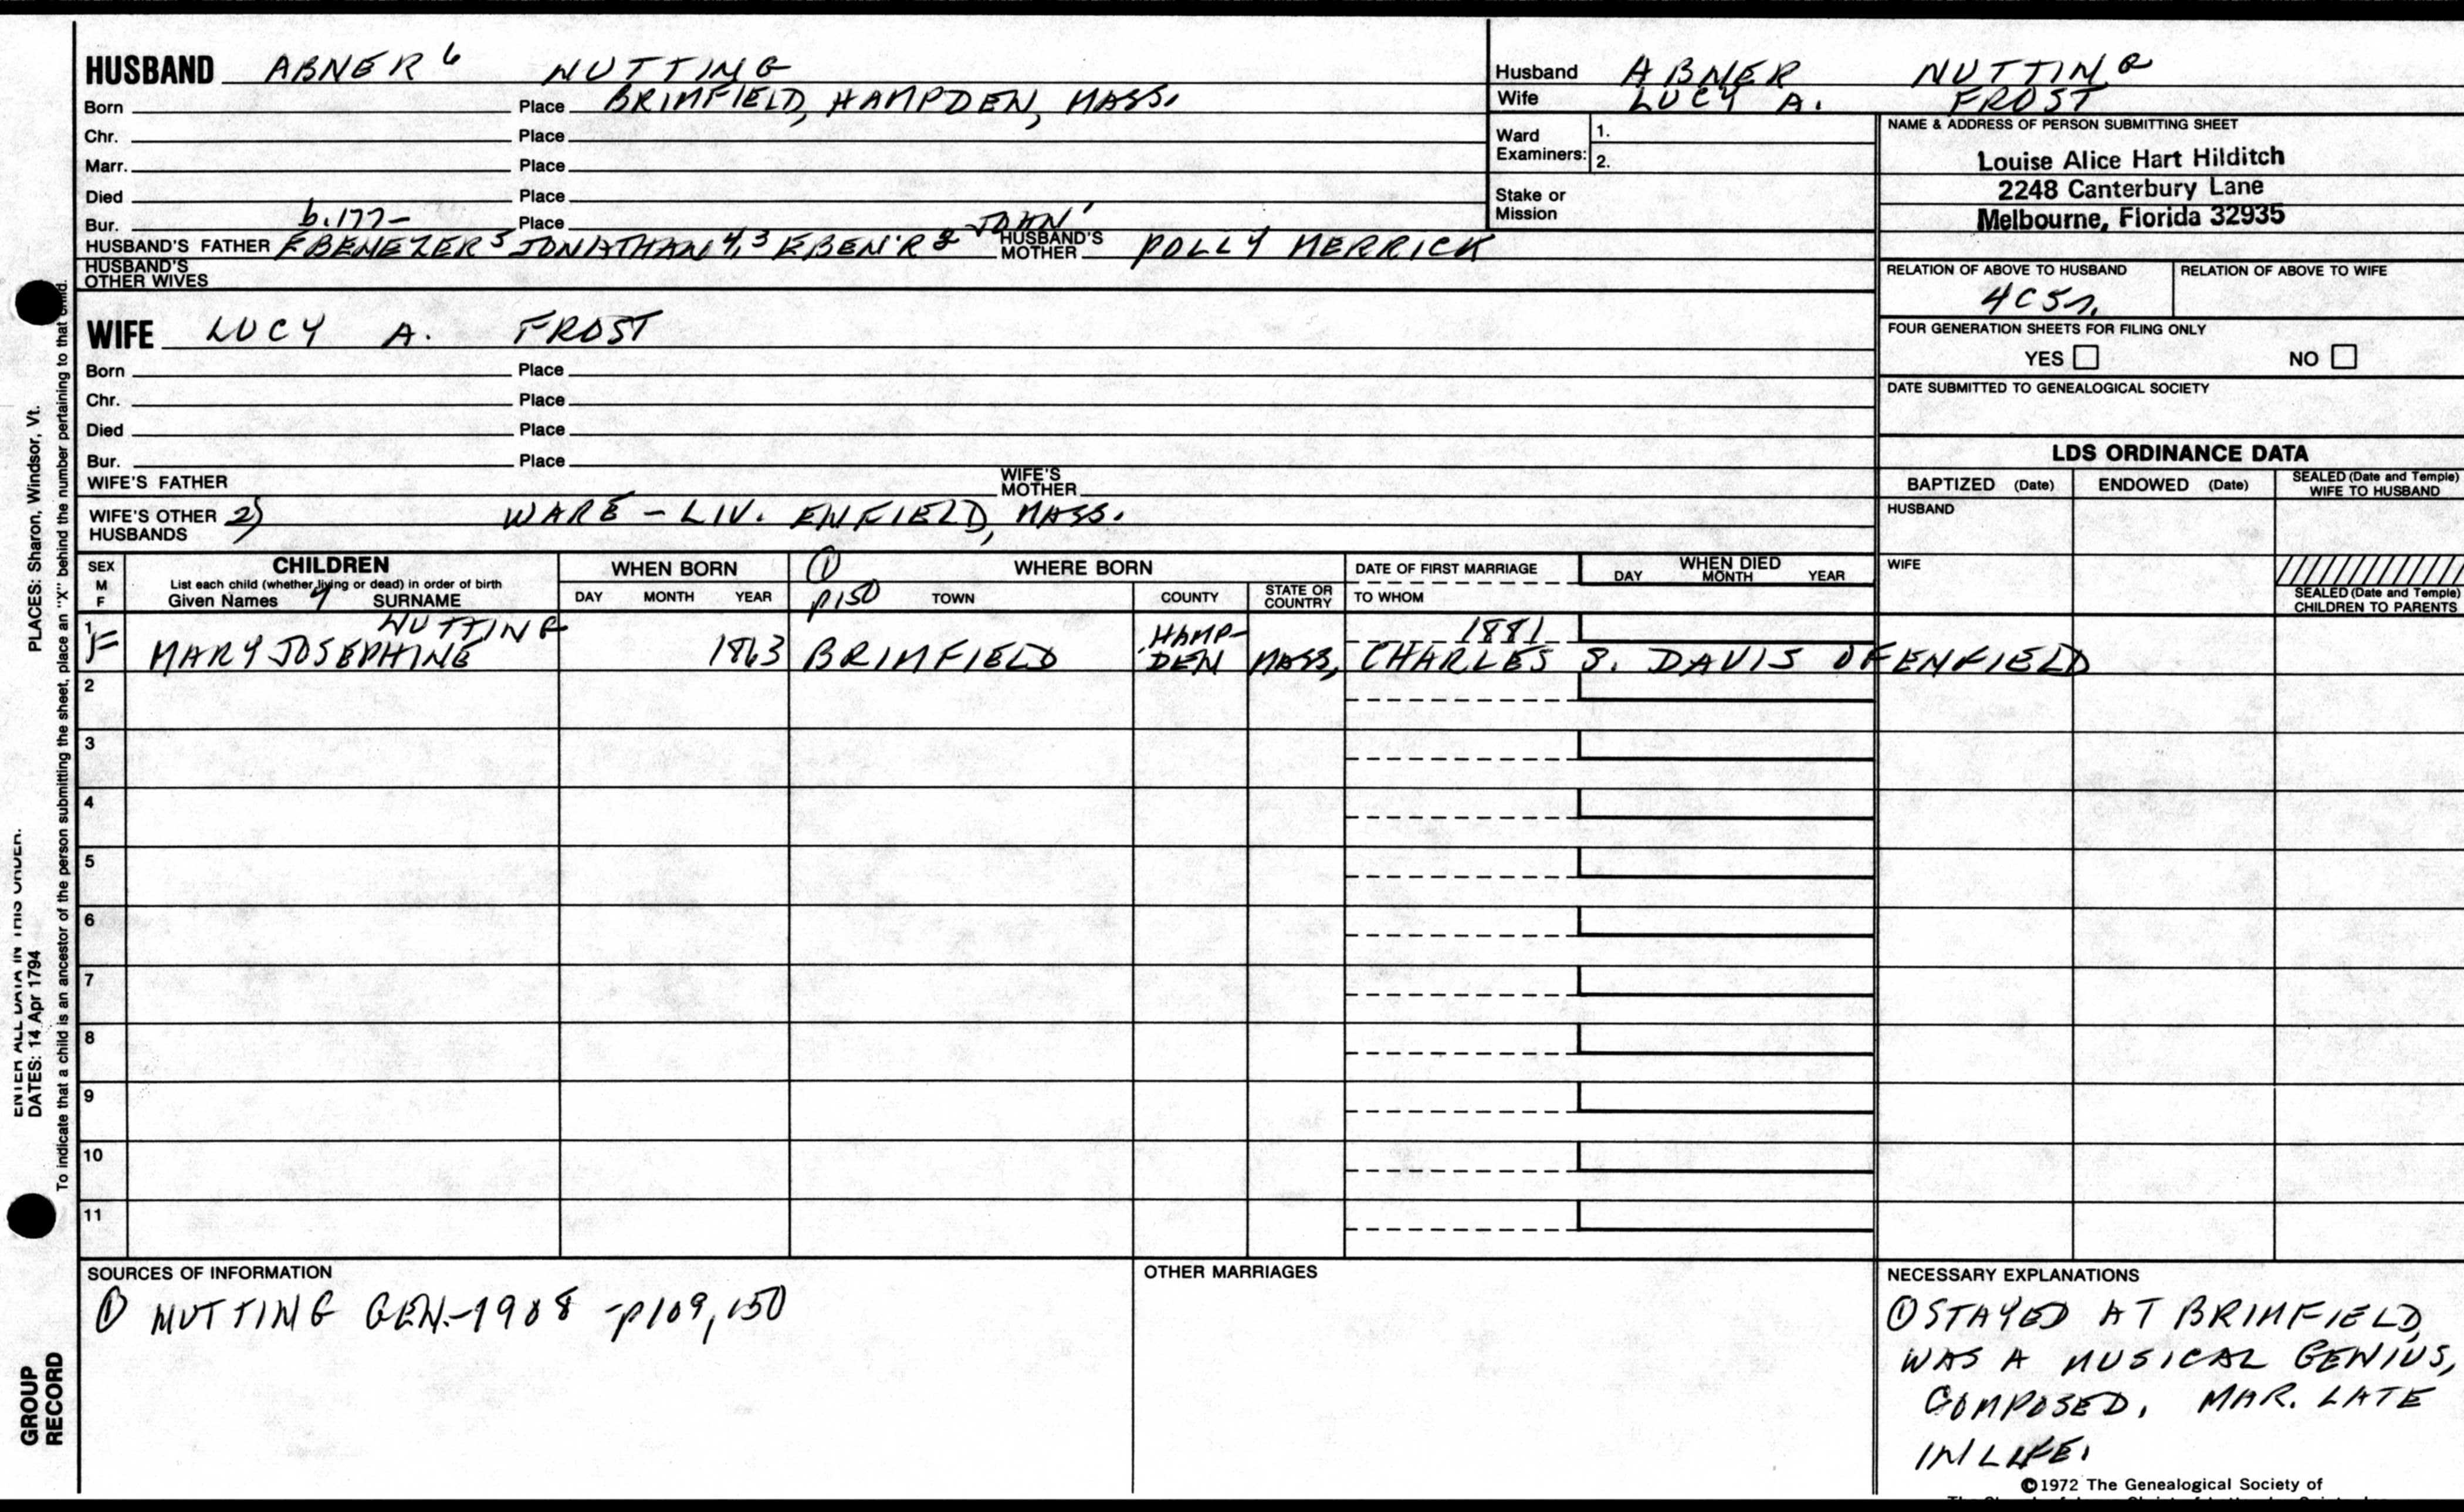 HUSBAND ABNER 6 NUTTING
Born Place BRIMFIELD, HAMPDEN, MASS.
Chr. Place
Marr. Place
Died Place
Bur. b.177- Place JOHN 1
HUSBAND'S FATHER EBENEZER 5 JONATHAN 4,3 EBEN'R 2 HUSBAND'S MOTHER POLLY MERRICK
HUSBAND'S OTHER WIVES
WIFE LUCY A. FROST
Born Place
Chr. Place
Died Place
Bur. Place
WIFE'S FATHER WIFE'S MOTHER
WIFE'S OTHER HUSBANDS 2) WARE - LIV. ENFIELD, MASS.
Husband ABNER NUTTING
Wife LUCY A. FROST
Ward Examiners: 1.
2.
Stake or Mission
NAME & ADDRESS OF PERSON SUBMITTING SHEET
Louise Alice Hart Hilditch
2248 Canterbury Lane
Melbourne, Florida 32935
RELATION OF ABOVE TO HUSBAND RELATION OF ABOVE TO WIFE
4C5r.
FOUR GENERATION SHEETS FOR FILING ONLY
YES NO
DATE SUBMITTED TO GENEALOGICAL SOCIETY
LDS ORDINANCE DATA
BAPTIZED (Date) ENDOWED (Date) SEALED (Date and Temple) WIFE TO HUSBAND
HUSBAND
WIFE
SEALED (Date and Temple) CHILDREN TO PARENTS
SEX M F CHILDREN WHEN BORN ① WHERE BORN DATE OF FIRST MARRIAGE WHEN DIED
List each child (whether living or dead) in order of birth
Given Names 7 SURNAME DAY MONTH YEAR p150 TOWN COUNTY STATE OR COUNTRY TO WHOM DAY MONTH YEAR
1 NUTTING HAMP- 1881
F MARY JOSEPHINE 1863 BRIMFIELD DEN MASS, CHARLES S. DAVIS OF ENFIELD
2
3
4
5
6
7
8
9
10
11
SOURCES OF INFORMATION
① NUTTING GEN.-1908 -p109,150
OTHER MARRIAGES
NECESSARY EXPLANATIONS
① STAYED AT BRIMFIELD,
WAS A MUSICAL GENIUS,
COMPOSED, MAR. LATE
IN LIFE.
©1972 The Genealogical Society of
ENTER ALL DATA IN THIS ORDER.
DATES: 14 Apr 1794 PLACES: Sharon, Windsor, Vt.
To indicate that a child is an ancestor of the person submitting the sheet, place an "X" behind the number pertaining to that child.
GROUP
RECORD